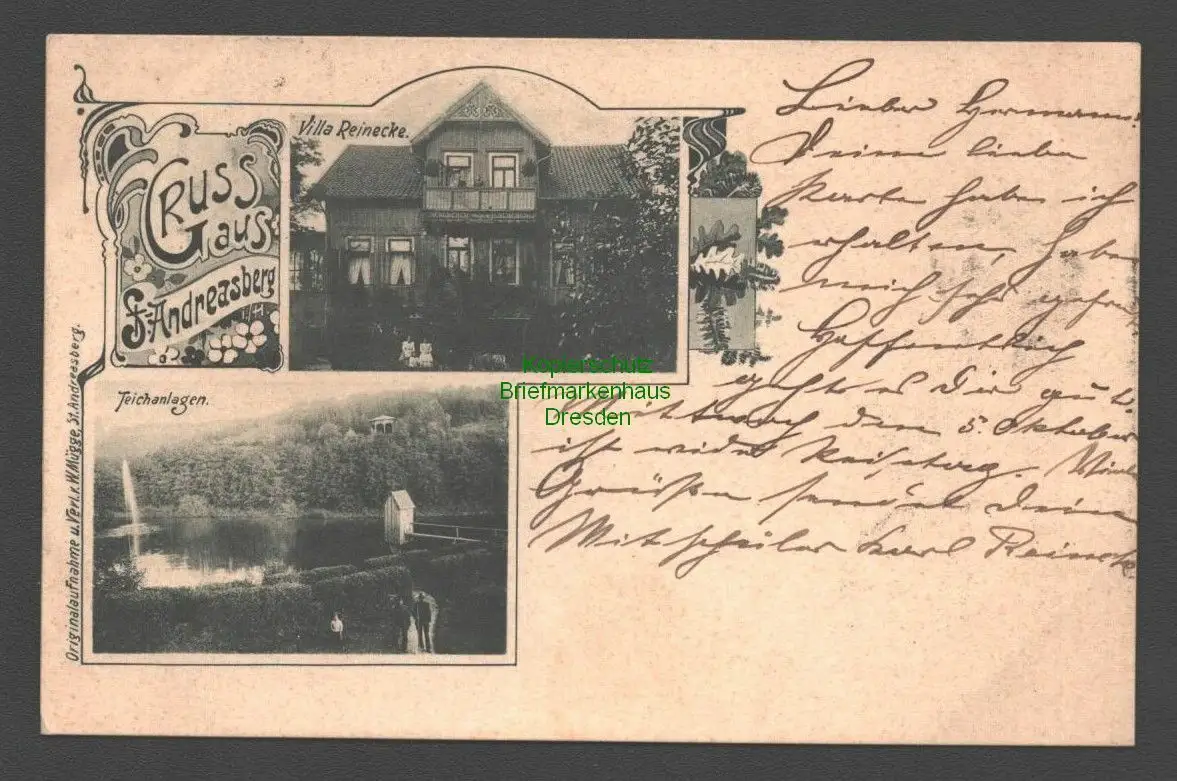 GRUSS
aus
St. Andreasberg
Villa Reinecke.
Teichanlagen.
Originalaufnahme u. Verl. v. W. Mügge, St. Andreasberg.
Lieber Hermann!
Deine liebe
Karte habe ich
erhalten, habe
mich sehr gefreu
Hoffentlich
geht es Dir gut.
Mittwoch den 5. Oktober
ist wider Reisetag. Viele
Grüße sendet Dein
Mitschüler Karl Reineck
Kopierschutz
Briefmarkenhaus
Dresden